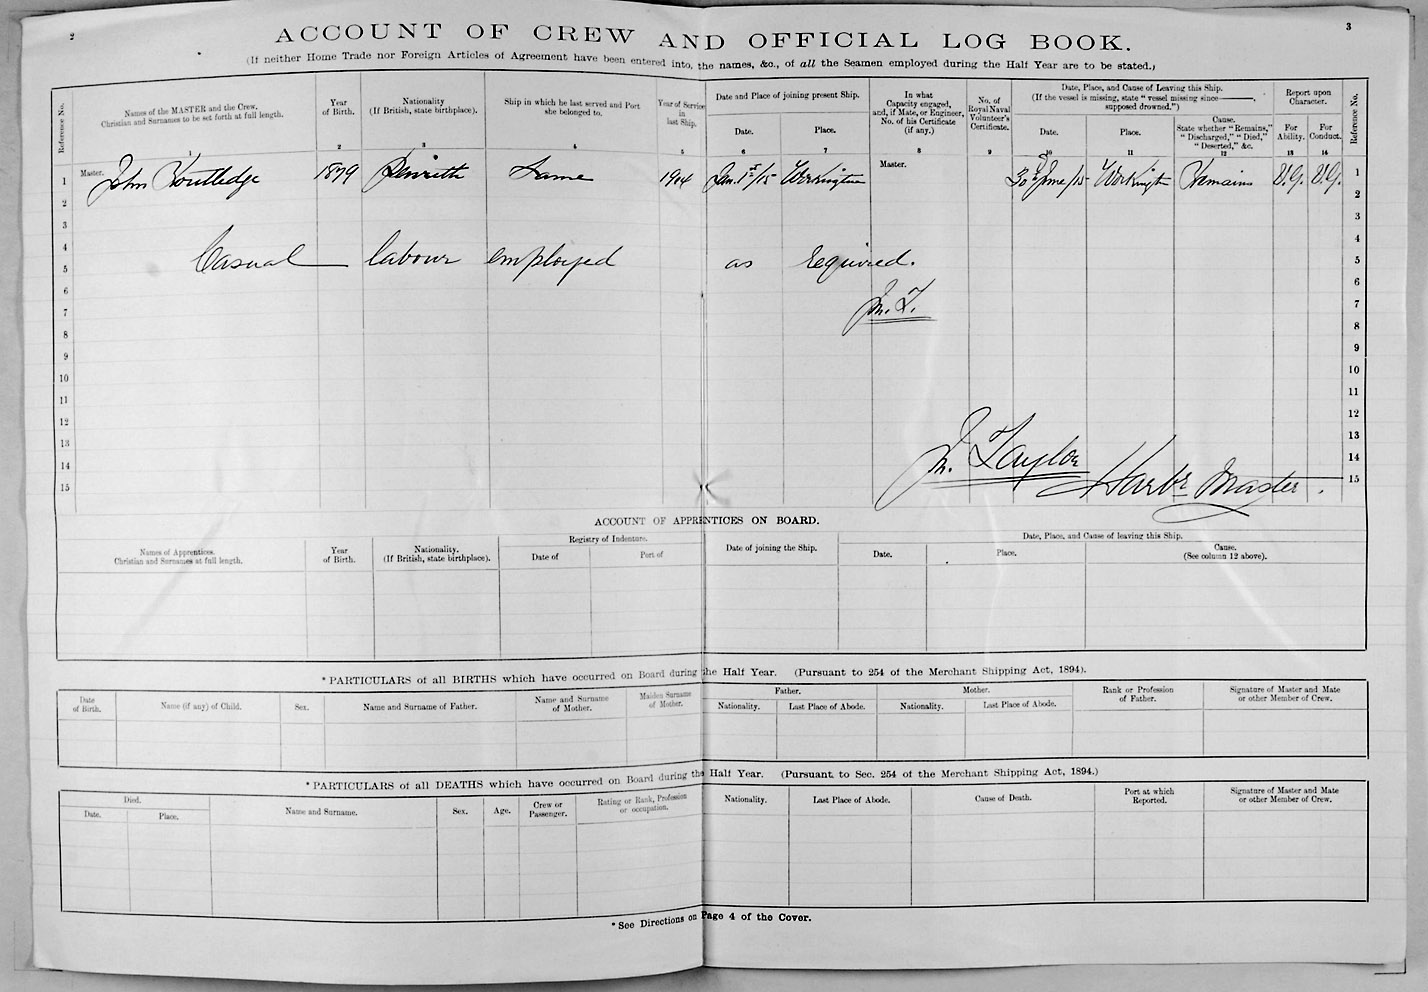 2
3
ACCOUNT OF CREW AND OFFICIAL LOG BOOK.
(If neither Home Trade nor Foreign Articles of Agreement have been entered into, the names, &c., of all the Seamen employed during the Half Year are to be stated.)
Reference No.
Names of the MASTER and the Crew.
Christian and Surnames to be set forth at full length.
Year
of Birth.
Nationality
(If British, state birthplace).
Ship in which he last served and Port
she belonged to.
Year of Service
in
last Ship.
Date and Place of joining present Ship.
Date.
Place.
In what
Capacity engaged,
and, if Mate, or Engineer,
No. of his Certificate
(if any.)
No. of
Royal Naval
Volunteer's
Certificate.
Date, Place, and Cause of Leaving this Ship.
(If the vessel is missing, state "vessel missing since ———,
supposed drowned.")
Date.
Place.
Cause.
State whether "Remains,"
"Discharged," "Died,"
"Deserted," &c.
Report upon
Character.
For
Ability.
For
Conduct.
Reference No.
1 2 3 4 5 6 7 8 9 10 11 12 13 14
1 Master. John Routledge 1879 Penrith Same 1914 Jan. 1st/15 Workington Master. 30th June/15 Workington Remains V.G. V.G. 1
2 2
3 3
4 4
5 Casual labour employed as required. 5
6 6
7 M. T. 7
8 8
9 9
10 10
11 11
12 12
13 13
14 M. Taylor 14
15 Harbr Master. 15
ACCOUNT OF APPRENTICES ON BOARD.
Names of Apprentices.
Christian and Surnames at full length.
Year
of Birth.
Nationality.
(If British, state birthplace).
Registry of Indenture.
Date of
Port of
Date of joining the Ship.
Date, Place, and Cause of leaving this Ship.
Date.
Place.
Cause.
(See column 12 above).
*PARTICULARS of all BIRTHS which have occurred on Board during the Half Year. (Pursuant to 254 of the Merchant Shipping Act, 1894).
Date
of Birth.
Name (if any) of Child.
Sex.
Name and Surname of Father.
Name and Surname
of Mother.
Maiden Surname
of Mother.
Father.
Nationality.
Last Place of Abode.
Mother.
Nationality.
Last Place of Abode.
Rank or Profession
of Father.
Signature of Master and Mate
or other Member of Crew.
*PARTICULARS of all DEATHS which have occurred on Board during the Half Year. (Pursuant to Sec. 254 of the Merchant Shipping Act, 1894.)
Died.
Date.
Place.
Name and Surname.
Sex.
Age.
Crew or
Passenger.
Rating or Rank, Profession
or occupation.
Nationality.
Last Place of Abode.
Cause of Death.
Port at which
Reported.
Signature of Master and Mate
or other Member of Crew.
*See Directions on Page 4 of the Cover.